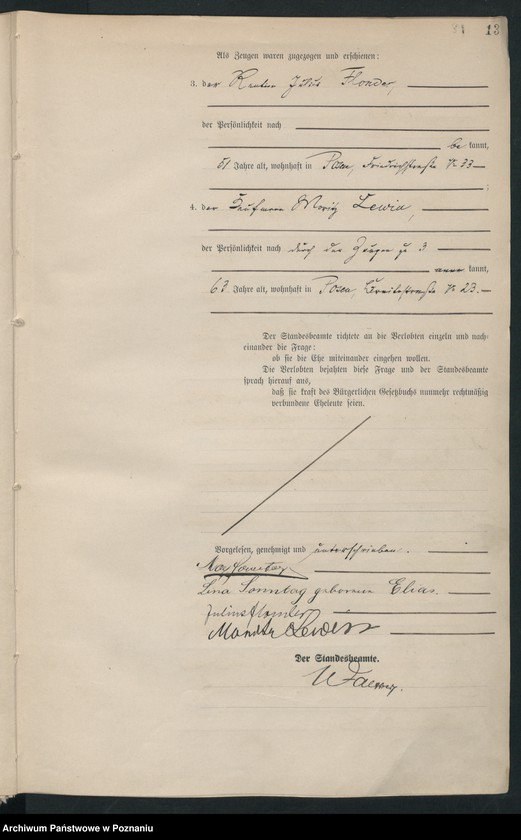 13
Als Zeugen waren zugezogen und erschienen:
3. der Rentner Julius Flonder,
der Persönlichkeit nach
be kannt,
51 Jahre alt, wohnhaft in Posen, Friedrichstraße N 33
;
4. der Kaufmann Moritz Lewin,
der Persönlichkeit nach durch den Zeugen zu 3
kannt,
63 Jahre alt, wohnhaft in Posen, Breitestraße N 23.
Der Standesbeamte richtete an die Verlobten einzeln und nach-
einander die Frage:
ob sie die Ehe miteinander eingehen wollen.
Die Verlobten bejahten diese Frage und der Standesbeamte
sprach hierauf aus,
daß sie kraft des Bürgerlichen Gesetzbuchs nunmehr rechtmäßig
verbundene Eheleute seien.
Vorgelesen, genehmigt und unterschrieben.
Max Sonntag
Lina Sonntag geborene Elias.
Julius Flonder
Moritz Lewin
Der Standesbeamte.
Archiwum Państwowe w Poznaniu